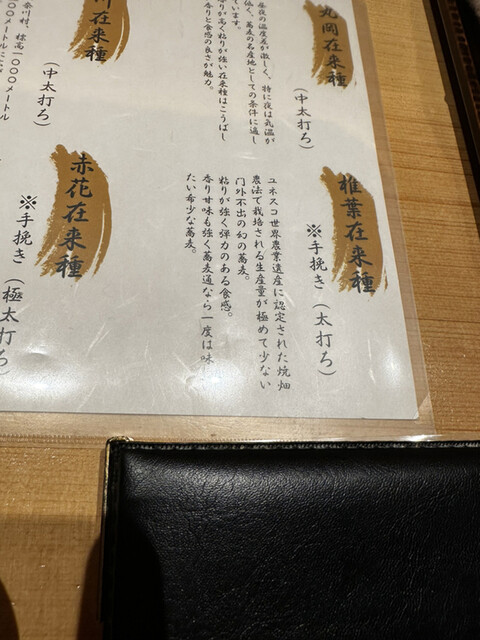 丸岡在来種
(中太打ろ)
昼夜の温度差が激しく、特に夜は気温が
低く、蕎麦の名産地としての条件に適し
ています。
香りが高く粘りが強い在来種はこうばし
香りと食感の良さが魅力。
川在来種
(中太打ろ)
奈川村、標高1000メートル
椎葉在来種
※手挽き(太打ろ)
ユネスコ世界農業遺産に認定された焼畑
農法で栽培される生産量が極めて少ない
門外不出の幻の蕎麦。
粘りが強く弾力のある食感。
香り甘味も強く蕎麦通なら一度は味
たい希少な蕎麦。
赤花在来種
※手挽き(極太打ろ)